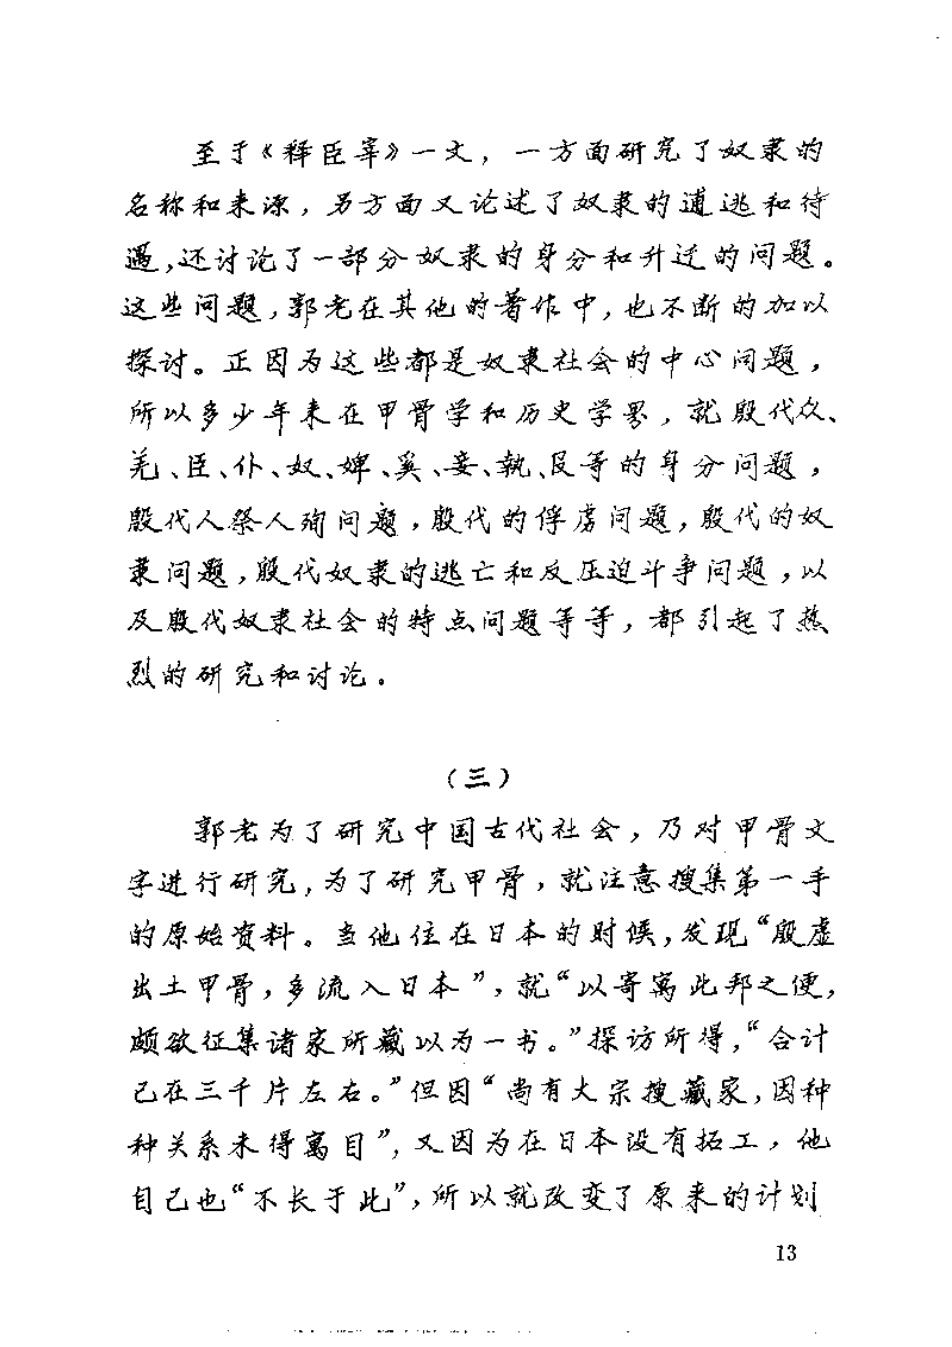 至于《释臣宰》一文，一方面研究了奴隶的
名称和来源，另方面又论述了奴隶的逋逃和待
遇，还讨论了一部分奴隶的身分和升迁的问题。
这些问题，郭老在其他的著作中，也不断的加以
探讨。正因为这些都是奴隶社会的中心问题，
所以多少年来在甲骨学和历史学界，就殷代众、
羌、臣、仆、奴、婢、奚、妾、執、𠬝等的身分问题，
殷代人祭人殉问题，殷代的俘虏问题，殷代的奴
隶问题，殷代奴隶的逃亡和反压迫斗争问题，以
及殷代奴隶社会的特点问题等等，都引起了热
烈的研究和讨论。
（三）
郭老为了研究中国古代社会，乃对甲骨文
字进行研究，为了研究甲骨，就注意搜集第一手
的原始资料。当他住在日本的时候，发现“殷虚
出土甲骨，多流入日本”，就“以寄寓此邦之便，
颇欲征集诸家所藏以为一书。”探访所得，“合计
已在三千片左右。”但因“尚有大宗搜藏家，因种
种关系未得寓目”，又因为在日本没有拓工，他
自己也“不长于此”，所以就改变了原来的计划
13